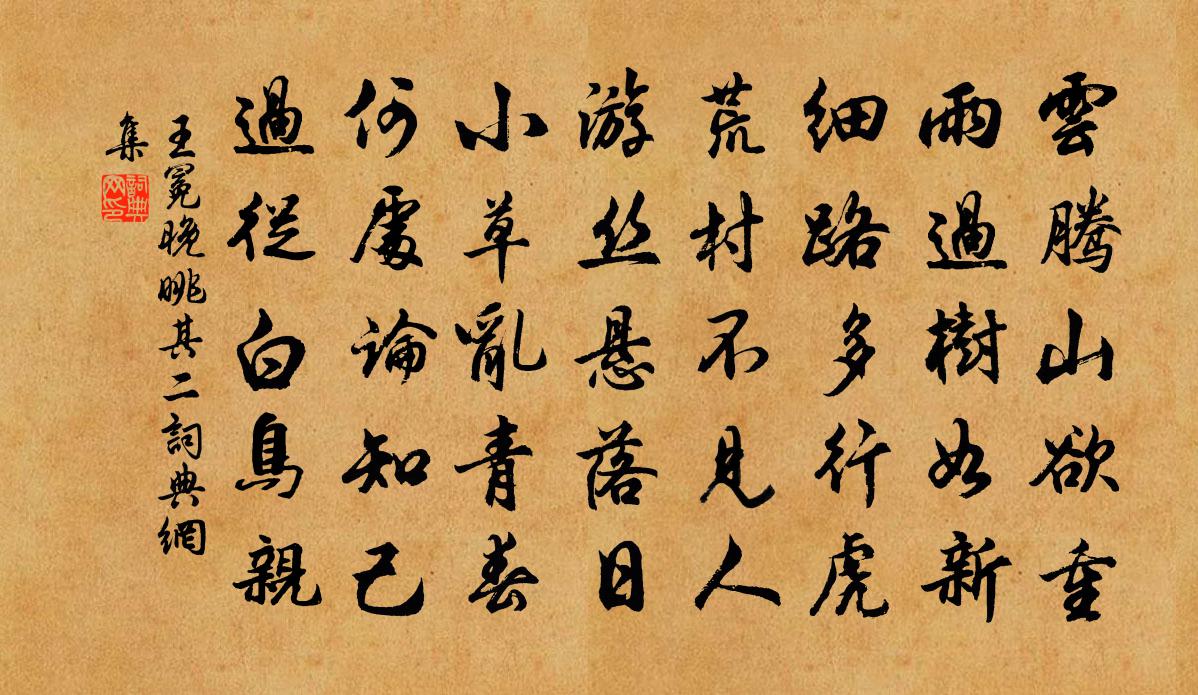 雲騰山欲重
雨過樹如新
細路多行虎
荒村不見人
游丝悬落日
小草亂青春
何處論知己
過從白鳥親
王冕晚眺其二詞典網
集
詞典
网印